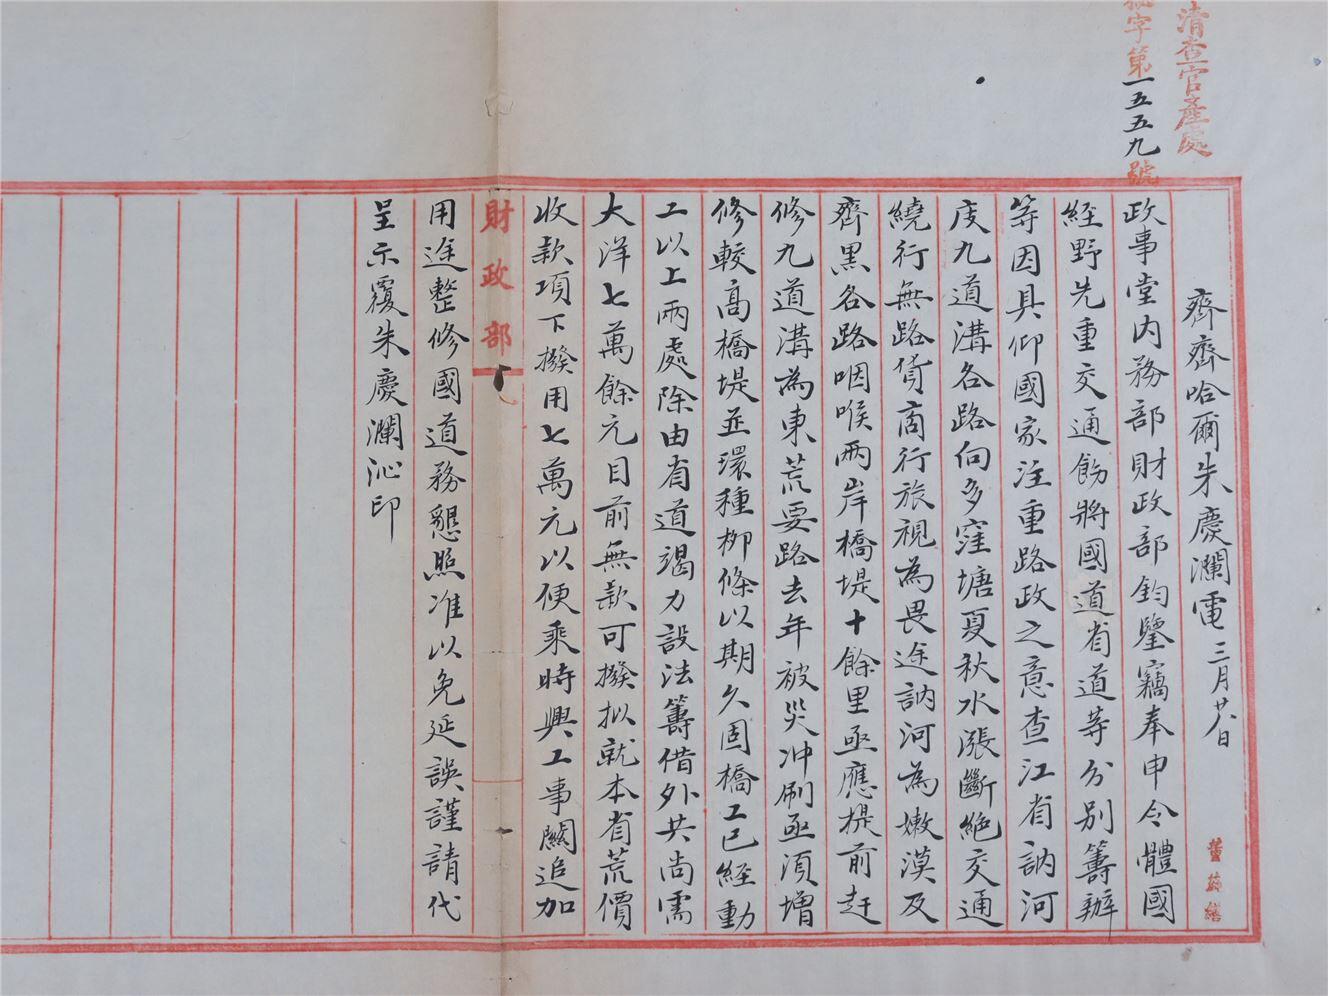 清查官產處
字第一五五九號
齊齊哈爾朱慶瀾電 三月廿八日
政事堂內務部財政部鈞鑒竊奉申令體國
經野先重交通飭將國道省道等分別籌辦
等因具仰國家注重路政之意查江省訥河
度九道溝各路向多窪塘夏秋水漲斷絕交通
繞行無路貨商行旅視為畏途訥河為嫩漠及
齊黑各路咽喉兩岸橋堤十餘里亟應提前赶
修九道溝為東荒要路去年被災冲刷亟須增
修較高橋堤並環種柳條以期久固橋工已經動
工以上兩處除由省道竭力設法籌借外共尚需
大洋七萬餘元目前無款可撥拟就本省荒價
收款項下撥用七萬元以便乘時興工事關追加
財政部
用途整修國道務懇照准以免延誤謹請代
呈示覆朱慶瀾沁印